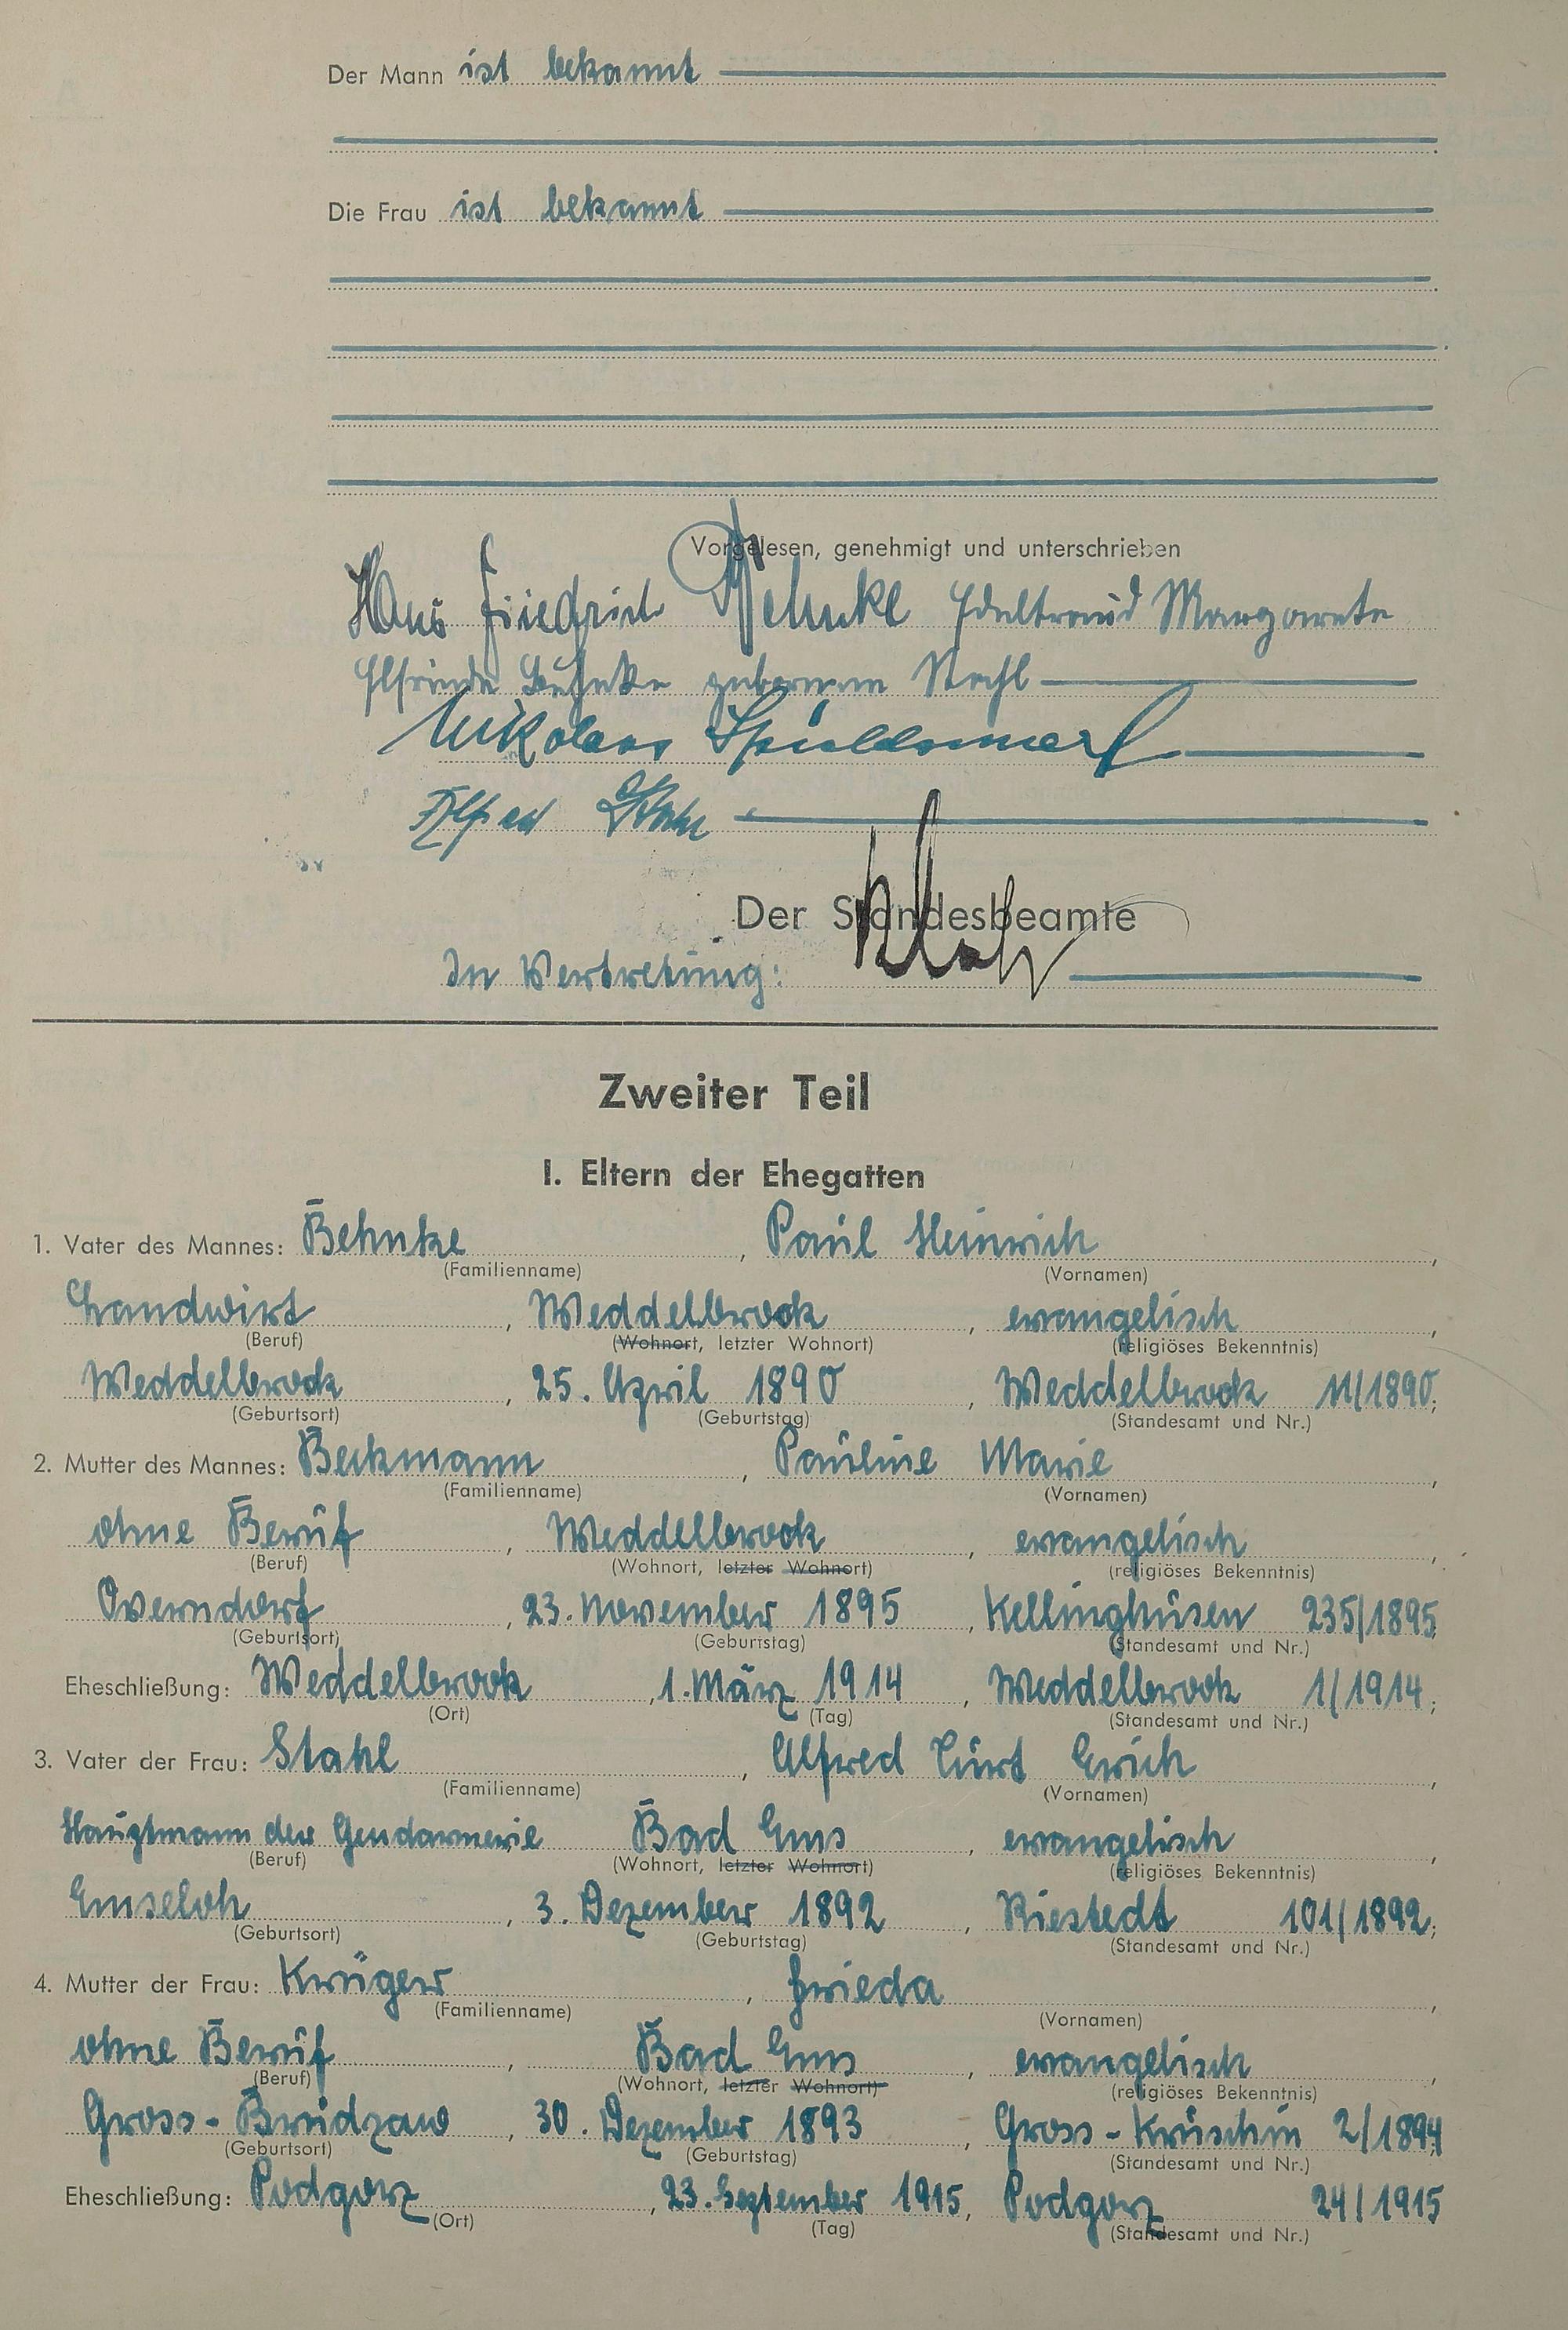 Der Mann ist bekannt
Die Frau ist bekannt
Vorgelesen, genehmigt und unterschrieben
Hans Friedrich Behnke Edeltraud Margarete
Elfriede Behnke geborene Stahl
Nikolaus
Alfred Stahl
Der Standesbeamte
In Vertretung:
Zweiter Teil
I. Eltern der Ehegatten
1. Vater des Mannes: Behnke, Paul Heinrich,
(Familienname) (Vornamen)
Landwirt, Weddelbrook, evangelisch,
(Beruf) (Wohnort, letzter Wohnort) (religiöses Bekenntnis)
Weddelbrook, 25. April 1890, Weddelbrook 11/1890;
(Geburtsort) (Geburtstag) (Standesamt und Nr.)
2. Mutter des Mannes: Beckmann, Pauline Marie,
(Familienname) (Vornamen)
ohne Beruf, Weddelbrook, evangelisch,
(Beruf) (Wohnort, letzter Wohnort) (religiöses Bekenntnis)
Overndorf, 23. November 1895, Kellinghusen 235/1895;
(Geburtsort) (Geburtstag) (Standesamt und Nr.)
Eheschließung: Weddelbrook, 1. März 1914, Weddelbrook 1/1914;
(Ort) (Tag) (Standesamt und Nr.)
3. Vater der Frau: Stahl, Alfred Curt Erich,
(Familienname) (Vornamen)
Hauptmann der Gendarmerie, Bad Ems, evangelisch,
(Beruf) (Wohnort, letzter Wohnort) (religiöses Bekenntnis)
Emseloh, 3. Dezember 1892, Riestedt 101/1892;
(Geburtsort) (Geburtstag) (Standesamt und Nr.)
4. Mutter der Frau: Krüger, Frieda,
(Familienname) (Vornamen)
ohne Beruf, Bad Ems, evangelisch,
(Beruf) (Wohnort, letzter Wohnort) (religiöses Bekenntnis)
Gross-Brudzaw, 30. Dezember 1893, Gross-Kruschin 2/1894;
(Geburtsort) (Geburtstag) (Standesamt und Nr.)
Eheschließung: Podgorz, 23. September 1915, Podgorz 24/1915
(Ort) (Tag) (Standesamt und Nr.)